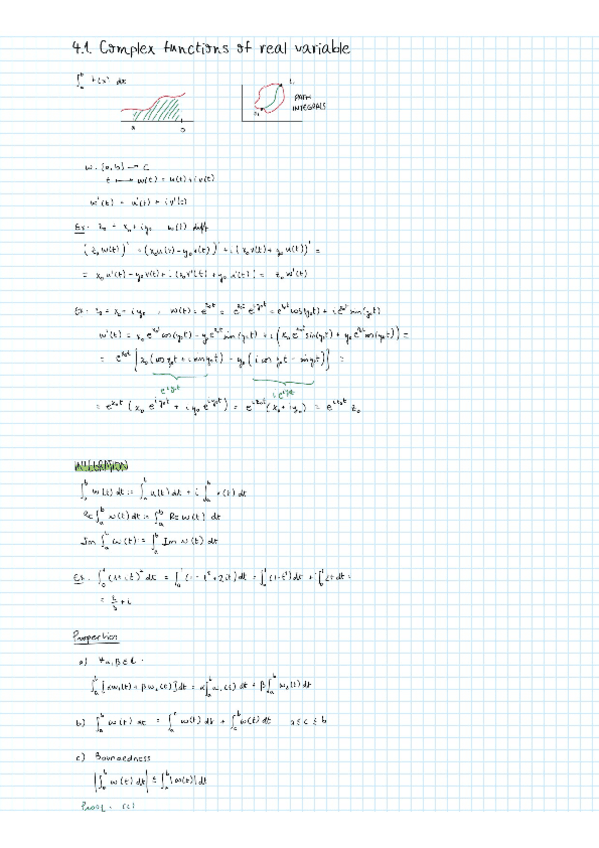 4.1. Complex functions of real variable
∫_a^b f(x) dx
PATH
INTEGRALS
a b
w: [a, b] → ℂ
t ↦ w(t) = u(t) + i v(t)
w'(t) = u'(t) + i v'(t)
Ex: z₀ = x₀ + i y₀ w(t) diff
(z₀ w(t))' = (x₀u(t) - y₀v(t))' + i(x₀v(t) + y₀u(t))' =
= x₀ u'(t) - y₀v'(t) + i(x₀v'(t) + y₀ u'(t)) = z₀ w'(t)
Ex: z₀ = x₀ + i y₀ , w(t) = e^{z₀t} = e^{x₀t} e^{iy₀t} = e^{x₀t} cos(y₀t) + i e^{x₀t} sin(y₀t)
w'(t) = x₀ e^{x₀t} cos(y₀t) - y₀e^{x₀t} sin(y₀t) + i(x₀e^{x₀t} sin(y₀t) + y₀e^{x₀t} cos(y₀t)) =
= e^{x₀t} [x₀(cos y₀t + i sin y₀t) + y₀(i cos y₀t - sin y₀t)] =
e^{iy₀t} i e^{iy₀t}
= e^{x₀t} (x₀ e^{iy₀t} + i y₀ e^{iy₀t}) = e^{z₀t} (x₀ + i y₀) = e^{z₀t} z₀
INTEGRATION
∫_a^b w(t) dt := ∫_a^b u(t) dt + i ∫_a^b v(t) dt
Re ∫_a^b w(t) dt = ∫_a^b Re w(t) dt
Im ∫_a^b w(t) = ∫_a^b Im w(t) dt
Ex. ∫_0^1 (1+it)² dt = ∫_0^1 (1 - t² + 2it) dt = ∫_0^1 (1-t²) dt + i ∫_0^1 2t dt =
= 2/3 + i
Properties
a) ∀α, β ∈ ℂ
∫_a^b [αw₁(t) + βw₂(t)] dt = α∫_a^b w₁(t) dt + β∫_a^b w₂(t) dt
b) ∫_a^b w(t) dt = ∫_a^c w(t) dt + ∫_c^b w(t) dt a ≤ c ≤ b
c) Boundedness
|∫_a^b w(t) dt| ≤ ∫_a^b |w(t)| dt
Proof.